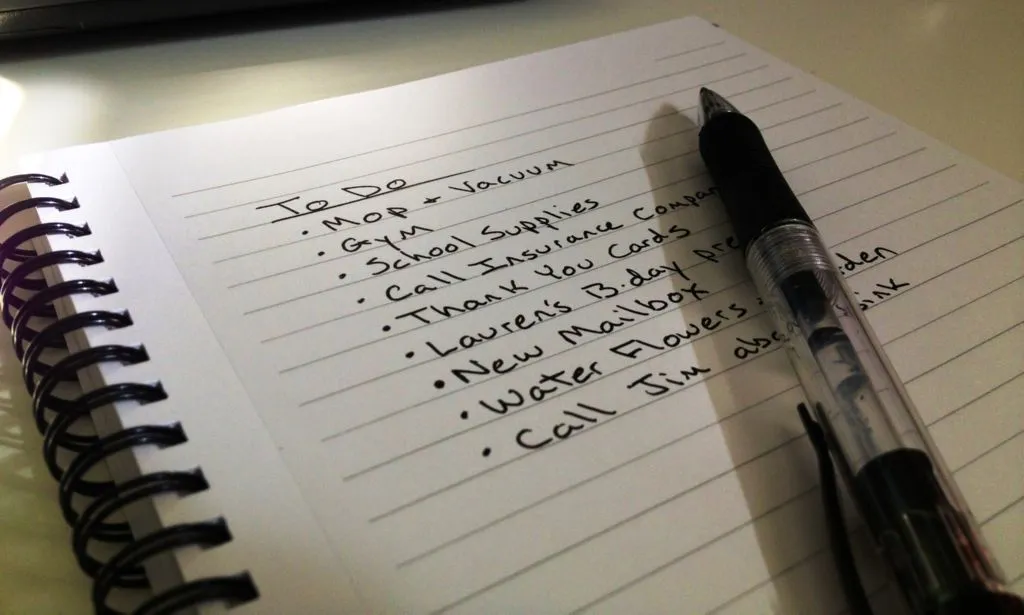 To Do
• Mop + Vacuum
• Gym
• School Supplies
• Call Insurance Compan
• Thank You Cards
• Lauren's B.day pre
• New Mailbox
• Water Flowers den
• Call Jim ink